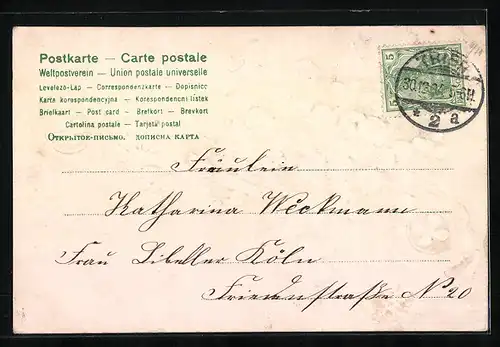 Postkarte — Carte postale
Weltpostverein — Union postale universelle
Levelező-Lap — Correspondenzkarte — Dopisnice
Karta korespondencyjna — Korespondencni listek
Briefkaart — Post card — Brefkort — Brevkort
Cartolina postale — Tarjeta postal
Открытое-письмо. дописна карта
5
TRIER
30.12.04
* 2 a
Fräulein
Katharina Weckmann
Frau Libeller Köln
Friedenstraße No 20